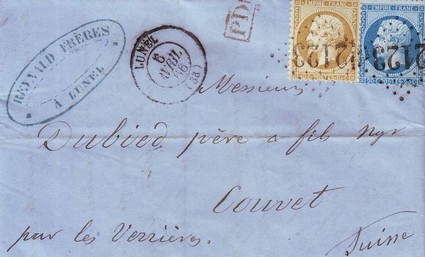 REYNAUD FRÈRES
A LUNEL
LUNEL
6
AVRIL
66
(33)
PD
EMPIRE FRANC
EMPIRE FRANC
2123
2123
Messieurs
Dubied père & fils Nyr
Couvet
par les Verrières.
Suisse